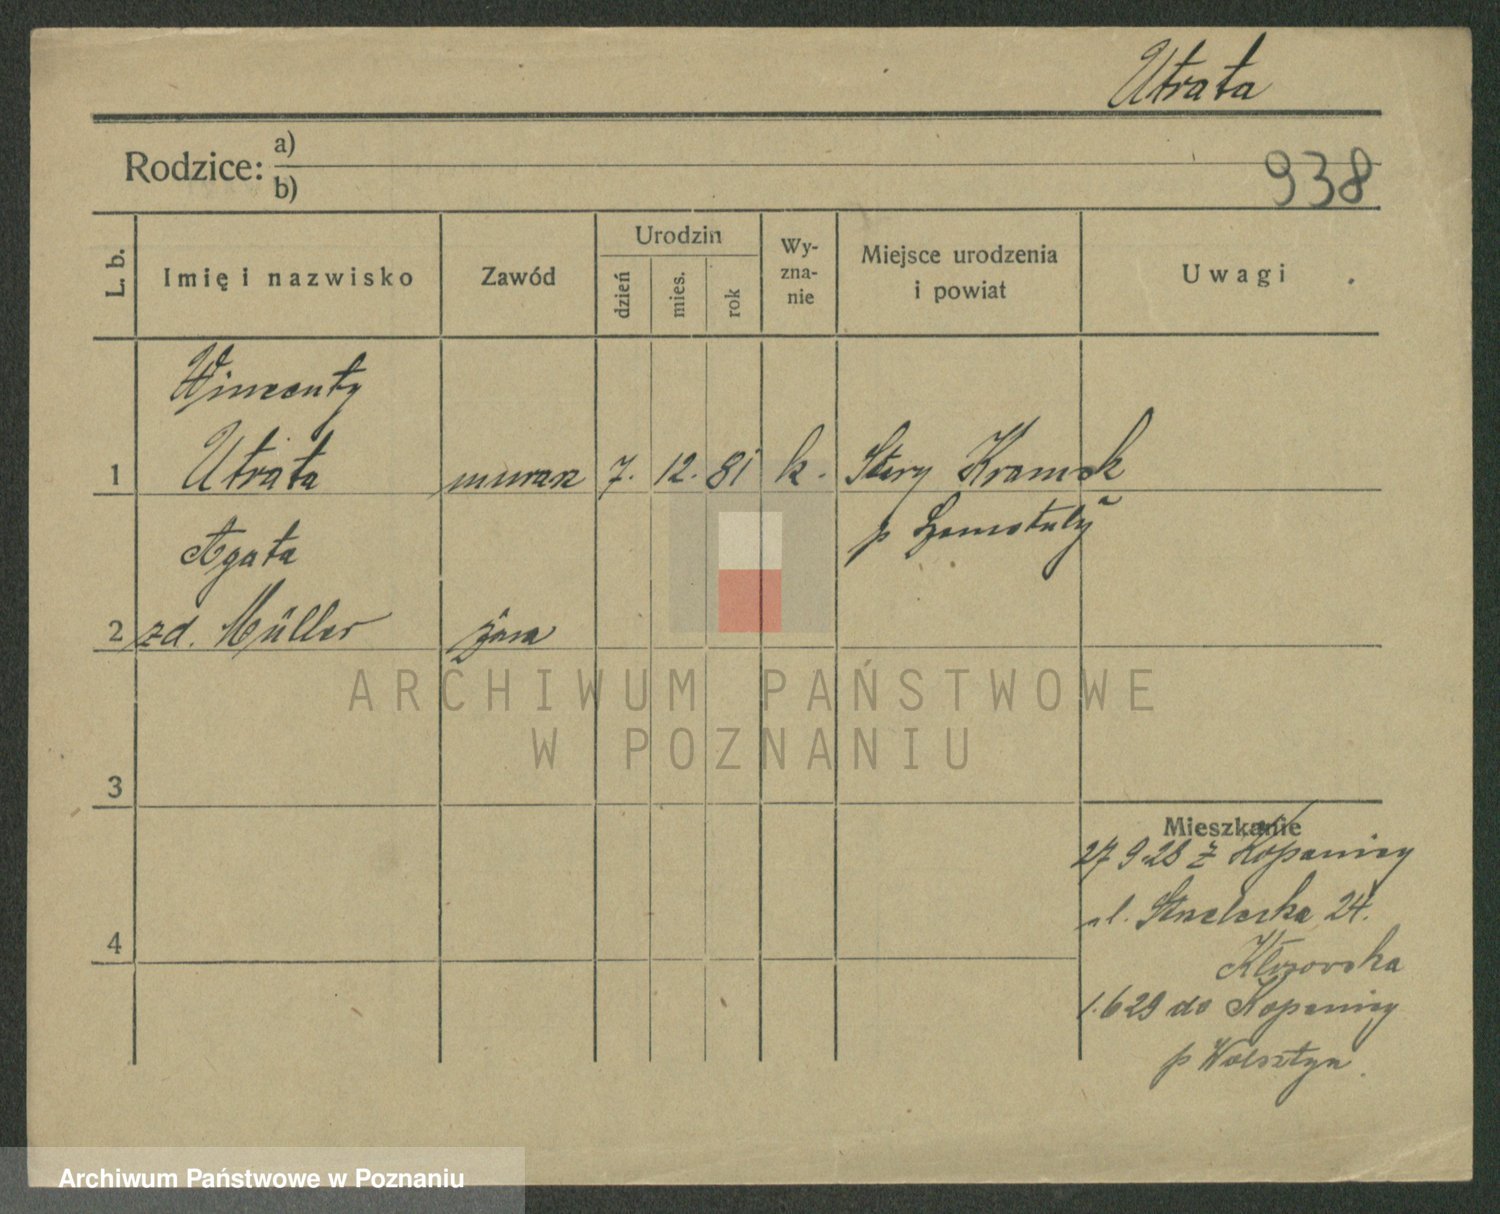 Utrata
Rodzice: a)
b)
938
L. b.
Imię i nazwisko
Zawód
Urodzin
dzień
mies.
rok
Wy-
zna-
nie
Miejsce urodzenia
i powiat
Uwagi
Wincenty
1 Utrata murarz 7. 12. 81 k. Stary
p Szamotuły
Agata
2 zd. Müller żona
3
4
Mieszkanie
27 9 28 z Kopanicy
ul. Strzelecka 24.
1.6 29 do Kopanicy
p Wolsztyn
ARCHIWUM PAŃSTWOWE
W POZNANIU
Archiwum Państwowe w Poznaniu